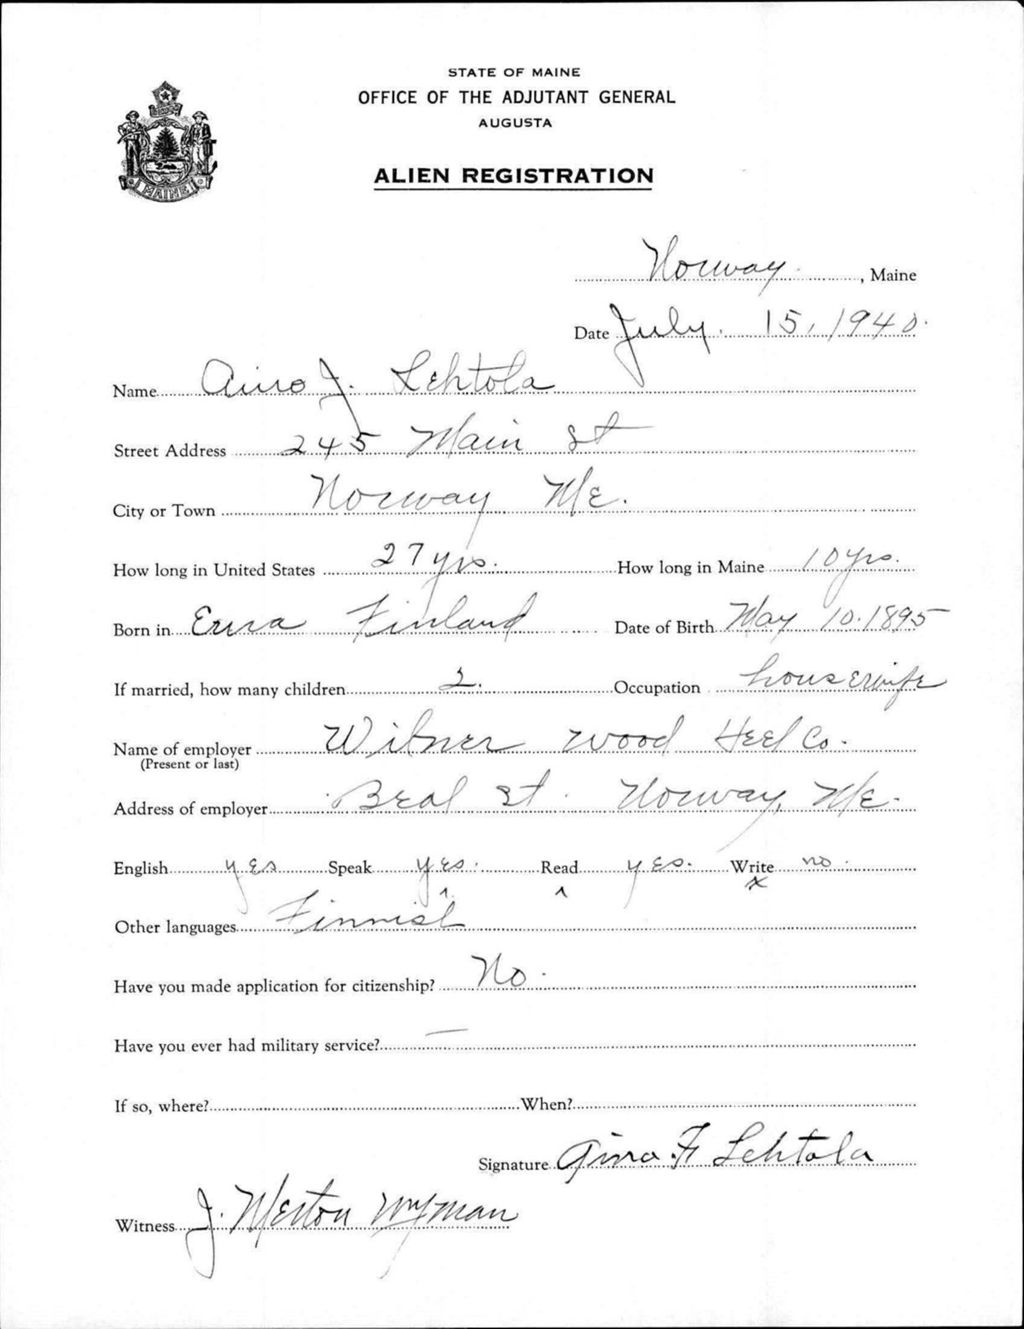 STATE OF MAINE
OFFICE OF THE ADJUTANT GENERAL
AUGUSTA
ALIEN REGISTRATION
MAINE
Norway, Maine
Date July. 15, 1940.
Name Aino J. Lehtola
Street Address 245 Main St
City or Town Norway Me.
How long in United States 27 yrs. How long in Maine 10 yrs.
Born in Finland Date of Birth May 10. 1895
If married, how many children 2. Occupation housewife
Name of employer Wilner Wood Heel Co.
(Present or last)
Address of employer Beal St. Norway, Me.
English yes Speak yes. Read yes. Write no.
Other languages Finnish
Have you made application for citizenship? No.
Have you ever had military service? —
If so, where? When?
Signature Aino Lehtola
Witness J. Merton Wyman